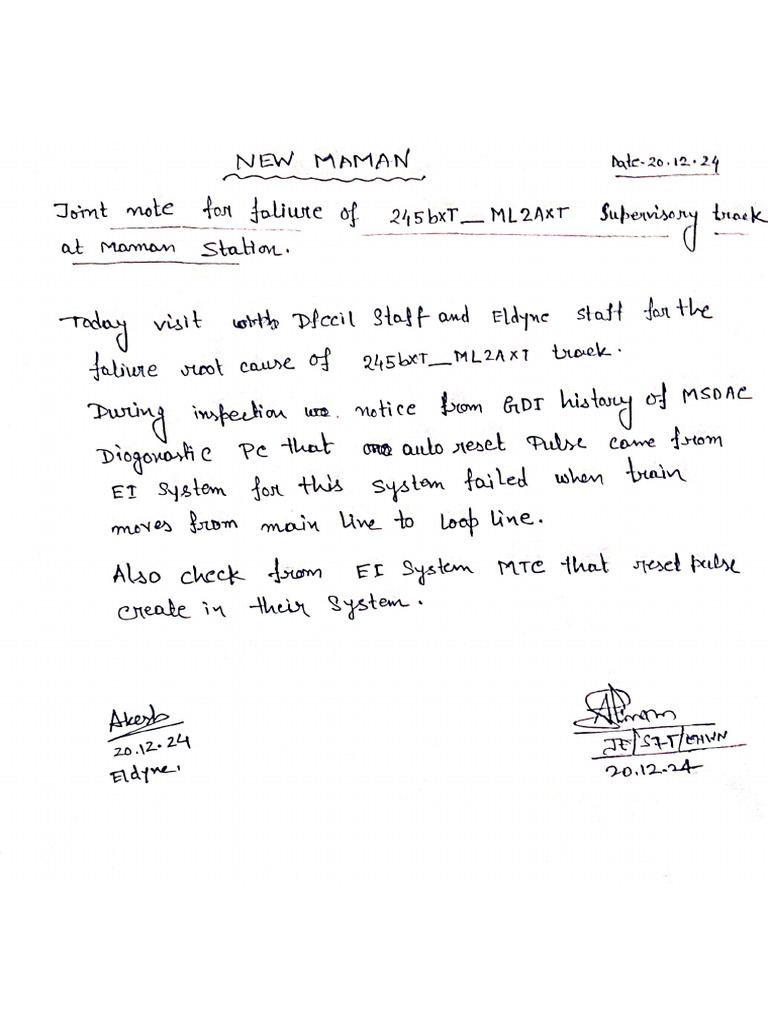 NEW MAMAN
Date-20.12.24
Joint note for faliure of 245bXT_ML2AXT Supervisory track
at Maman Station.
Today visit with Dfccil Staff and Eldyne staff for the
faliure root cause of 245bXT_ML2AXT track.
During inspection we notice from GDI history of MSDAC
Diogonastic PC that one auto reset Pulse came from
EI System for this System failed when train
moves from main line to loop line.
Also check from EI System MTC that reset pulse
create in their System.
20.12.24
Eldyne.
JE/S&T/
20.12.24